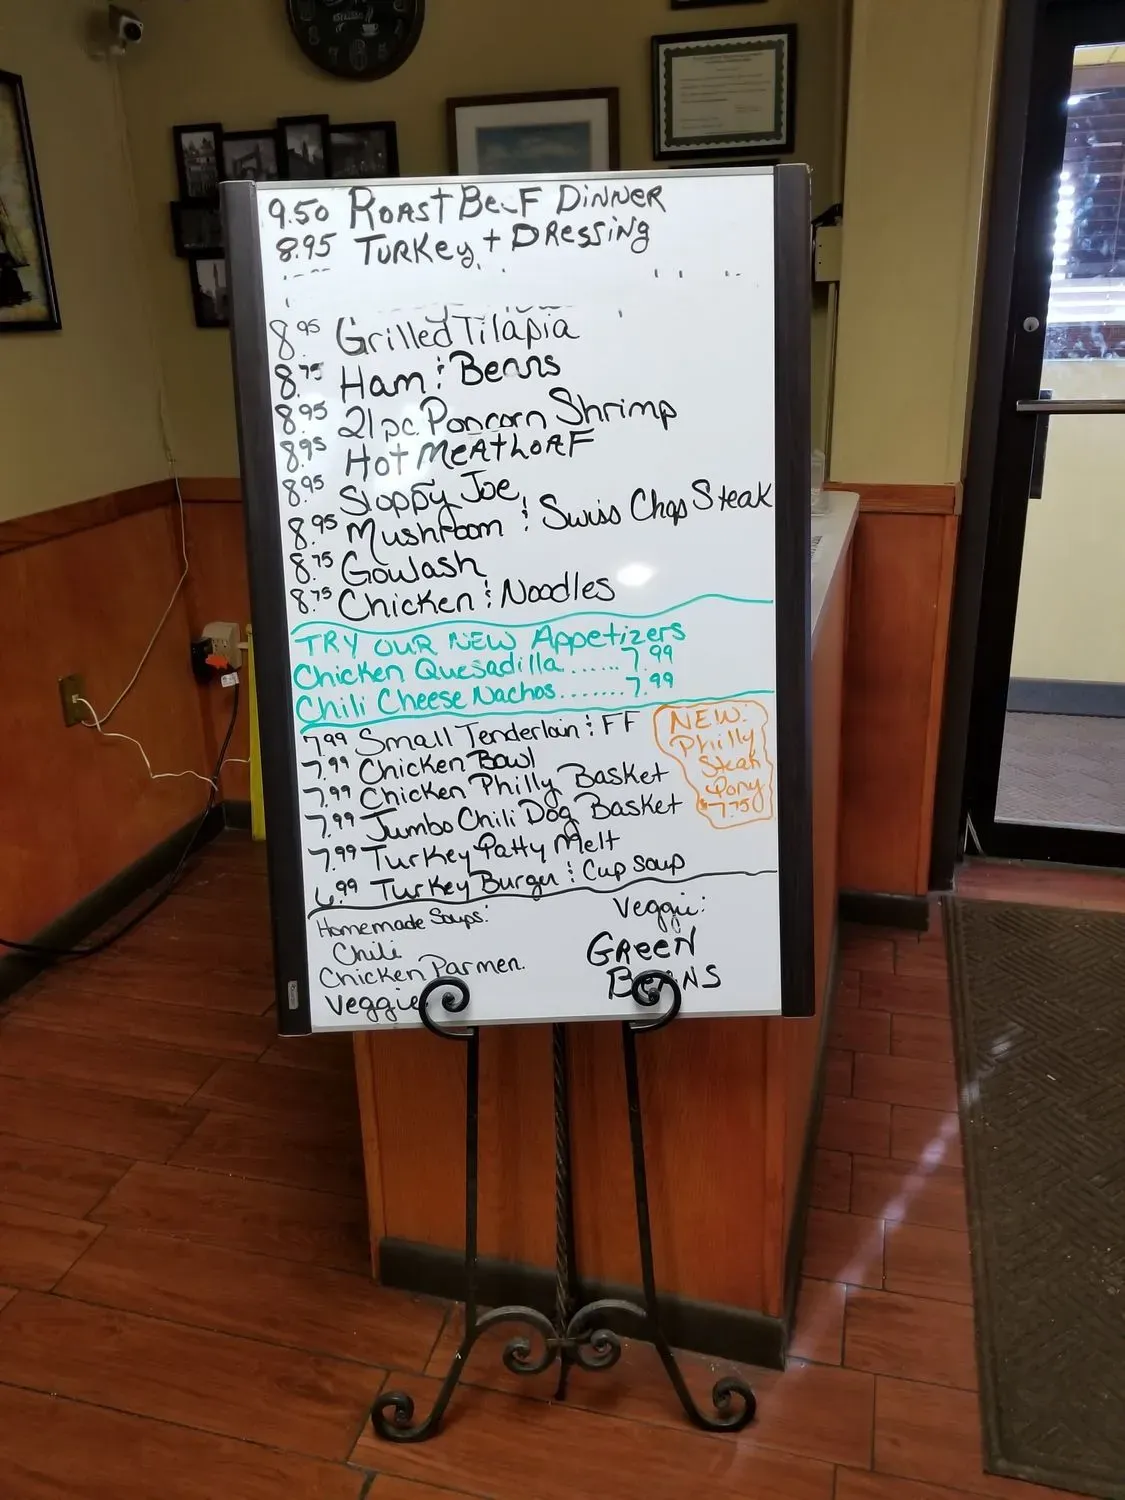 9.50 ROAST BEEF DINNER
8.95 TURKEY + DRESSING
8.95 Grilled Tilapia
8.75 Ham & Beans
8.95 21 pc. Poncorn Shrimp
8.95 HOT MEATLOAF
8.95 Sloppy Joe
8.95 Mushroom & Swiss Chop Steak
8.75 Gowlash
8.75 Chicken & Noodles
TRY OUR NEW Appetizers
Chicken Quesadilla......7.99
Chili Cheese Nachos........7.99
7.99 Small Tenderloin & FF
7.99 Chicken Bowl
7.99 Chicken Philly Basket
7.99 Jumbo Chili Dog Basket
7.99 Turkey Patty Melt
6.99 Turkey Burger & Cup Soup
NEW:
Philly
Steak
Pony
$7.75
Homemade Soups:
Chili
Chicken Parmen.
Veggie
Veggie:
GREEN
BEANS